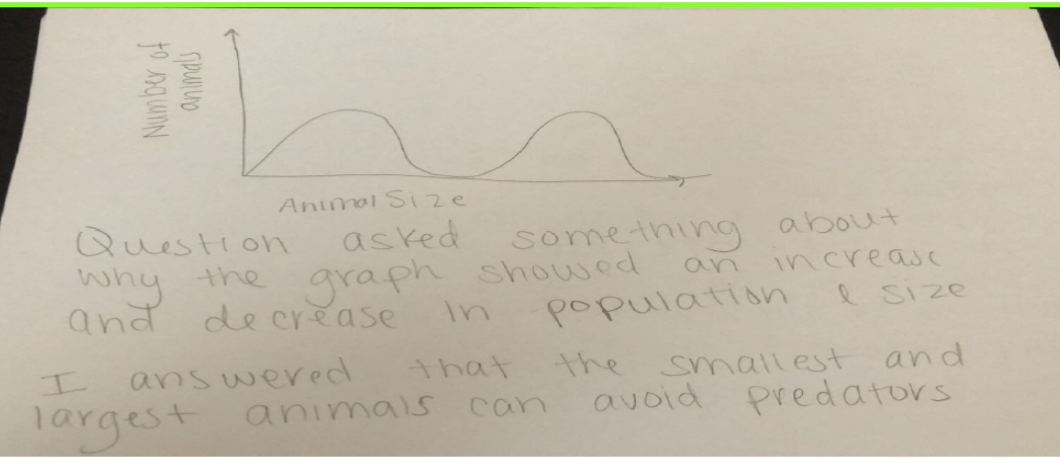 Number of
animals
Animal Size
Question asked something about
why the graph showed an increase
and decrease in population & size
I answered that the smallest and
largest animals can avoid predators